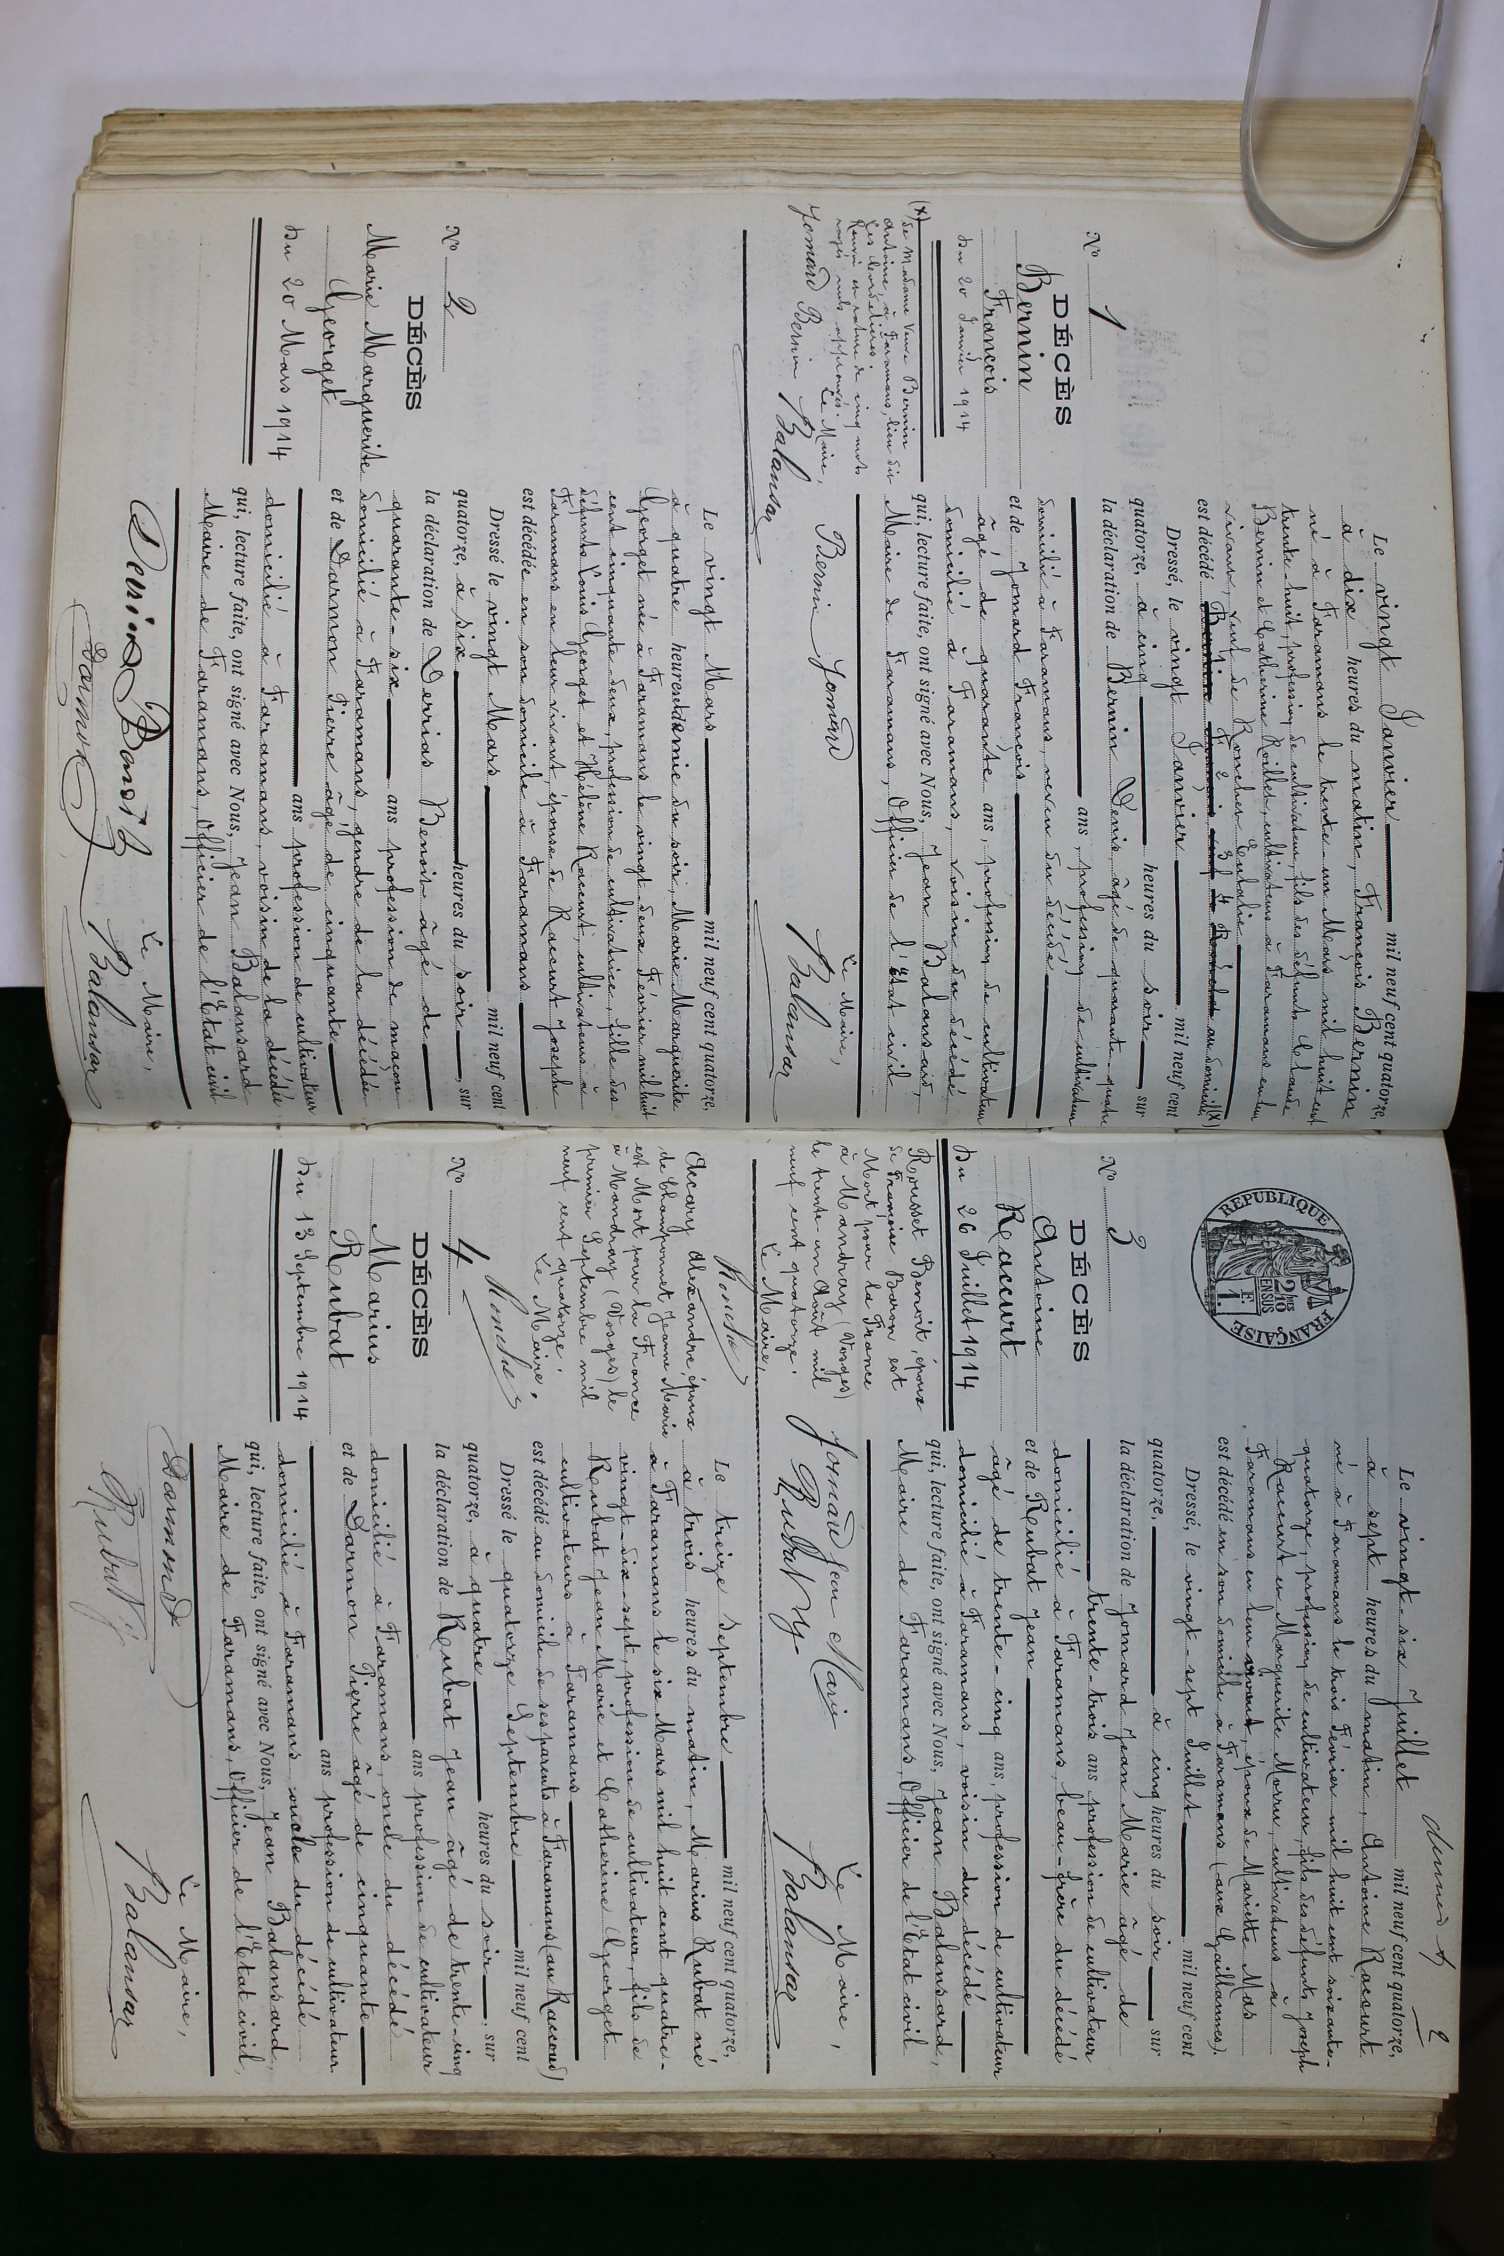 N° 1
DÉCÈS
Bernin
François
Du 20 Janvier 1914
(X) de Madame Veuve Bernin
Antoine, à Faramans, lieu dit
Les Cordelières.
Renvoi et rature de cinq mots
rayés nuls approuvés.
Le Maire,
Jomard Bernin Balansar
Le vingt Janvier mil neuf cent quatorze,
à dix heures du matin, François Bernin
né à Faramans le trente-un Mars mil huit cent
trente-huit, profession de cultivateur, fils des défunts Claude
Bernin et Catherine Roillet, cultivateurs à Faramans en leur
vivant, veuf de Ronchet Eulalie
est décédé au domicile (X)
Dressé, le vingt Janvier mil neuf cent
quatorze, à cinq heures du soir, sur
la déclaration de Bernin Denis, âgé de quarante-quatre
ans, profession de cultivateur
domicilié à Faramans, neveu du décédé
et de Jomard François
âgé de quarante ans, profession de cultivateur
domicilié à Faramans, voisin du décédé
qui, lecture faite, ont signé avec Nous, Jean Balansard,
Maire de Faramans, Officier de l'État civil
Le Maire,
Bernin Jomard Balansar
N° 2
DÉCÈS
Marie Marguerite
Georget
Du 20 Mars 1914
Le vingt Mars mil neuf cent quatorze,
à quatre heures et demie du soir, Marie Marguerite
Georget née à Faramans le vingt-deux Février mil huit
cent cinquante deux, profession de cultivatrice, fille des
défunts Louis Georget et Hélène Racurt, cultivateurs à
Faramans en leur vivant épouse de Racurt Joseph
est décédée en son domicile à Faramans
Dressé le vingt Mars mil neuf cent
quatorze, à six heures du soir, sur
la déclaration de Derrias Benoit âgé de
quarante-six ans profession de maçon
domicilié à Faramans, gendre de la décédée
et de Darmon Pierre âgé de cinquante
ans profession de cultivateur
domicilié à Faramans, voisin de la décédée
qui, lecture faite, ont signé avec Nous, Jean Balansard
Maire de Faramans, Officier de l'État civil
Le Maire,
Derrias Benoit Balansar
Darmon
2
REPUBLIQUE FRANÇAISE
2/10 EN SUS
1 F.
N° 3
DÉCÈS
Antoine
Racurt
Du 26 Juillet 1914
Rousset Benoit, époux
de Françoise Baron est
Mort pour la France
à Mandray (Vosges)
le trente-un Août mil
neuf cent quatorze.
Le Maire,
Le vingt-six Juillet mil neuf cent quatorze,
à sept heures du matin, Antoine Racurt
né à Faramans le trois Février mil huit cent soixante-
quatorze, profession de cultivateur, fils des défunts Joseph
Racurt et Marguerite Morru, cultivateurs à
Faramans en leur vivant, époux de Mariette Mas
est décédé en son domicile à Faramans (aux Guillaumes).
Dressé, le vingt-sept Juillet mil neuf cent
quatorze, à cinq heures du soir, sur
la déclaration de Jomard Jean Marie âgé de
trente-trois ans profession de cultivateur
domicilié à Faramans, beau-frère du décédé
et de Rubat Jean
âgé de trente-cinq ans, profession de cultivateur
domicilié à Faramans, voisin du décédé
qui, lecture faite, ont signé avec Nous, Jean Balansard,
Maire de Faramans, Officier de l'État civil
Le Maire,
Jomard Jean Marie Balansar
Rubat
Accary Alexandre, époux
de Champonnet Jeanne Marie
est Mort pour la France
à Mandray (Vosges) le
premier Septembre mil
neuf cent quatorze.
Le Maire.
N° 4
DÉCÈS
Marius
Rubat
Du 13 Septembre 1914
Le treize Septembre mil neuf cent quatorze,
à trois heures du matin, Marius Rubat né
à Faramans le six Mars mil huit cent quatre-
vingt-dix-sept, profession de cultivateur, fils de
Rubat Jean Marie et Catherine Georget
cultivateurs à Faramans
est décédé au domicile de ses parents à Faramans (au Raccoud)
Dressé le quatorze Septembre mil neuf cent
quatorze, à quatre heures du soir, sur
la déclaration de Rubat Jean âgé de trente-cinq
ans profession de cultivateur
domicilié à Faramans, oncle du décédé
et de Darmon Pierre âgé de cinquante
ans profession de cultivateur
domicilié à Faramans oncle du décédé
qui, lecture faite, ont signé avec Nous, Jean Balansard,
Maire de Faramans, Officier de l'État civil,
Le Maire,
Darmon Balansar
Rubat